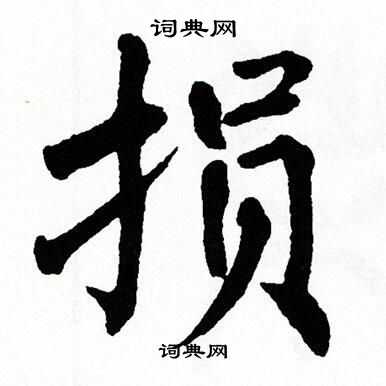 词典网
损
词典网